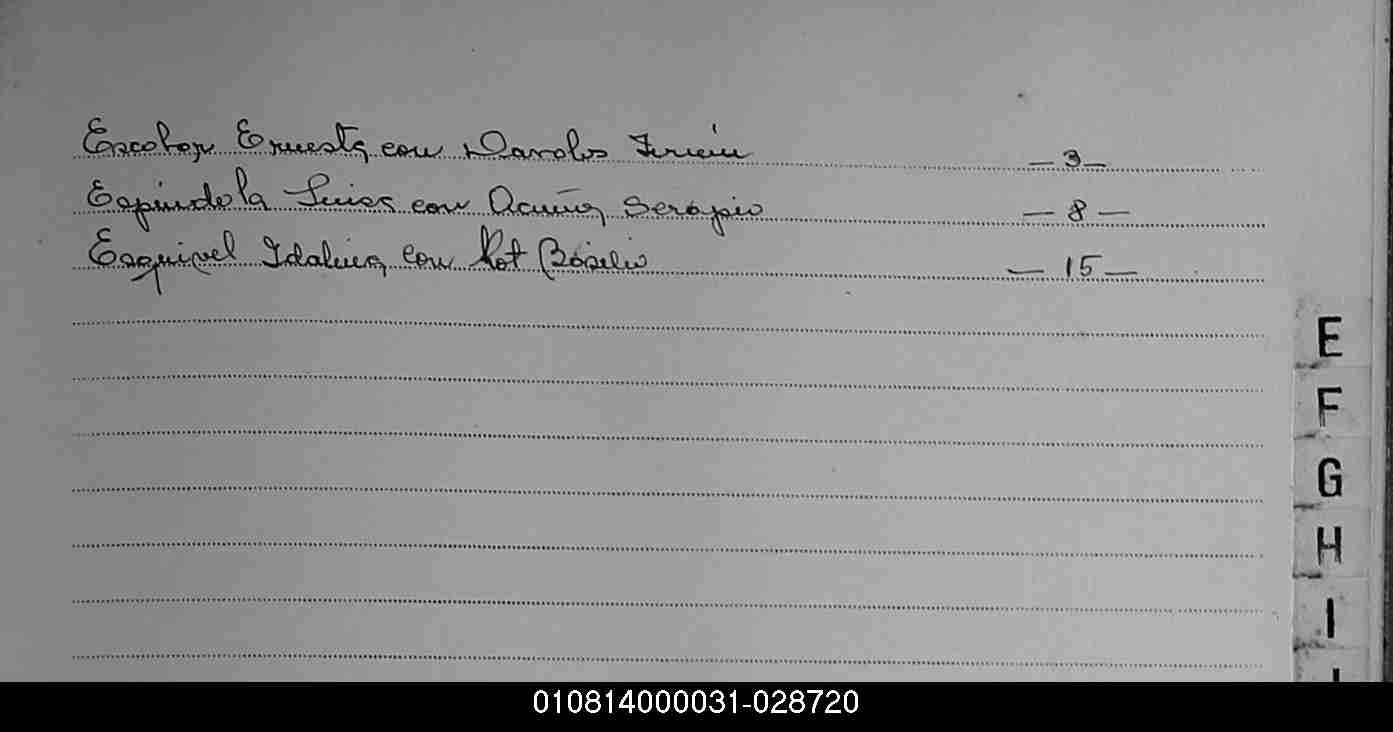 Escobar Ernesta con Davalos Fermin — 3 —
Espindola Luisa con Acuña Serapio — 8 —
Esquivel Idalina con Kot Basilio — 15 —
E
F
G
H
I
010814000031-028720